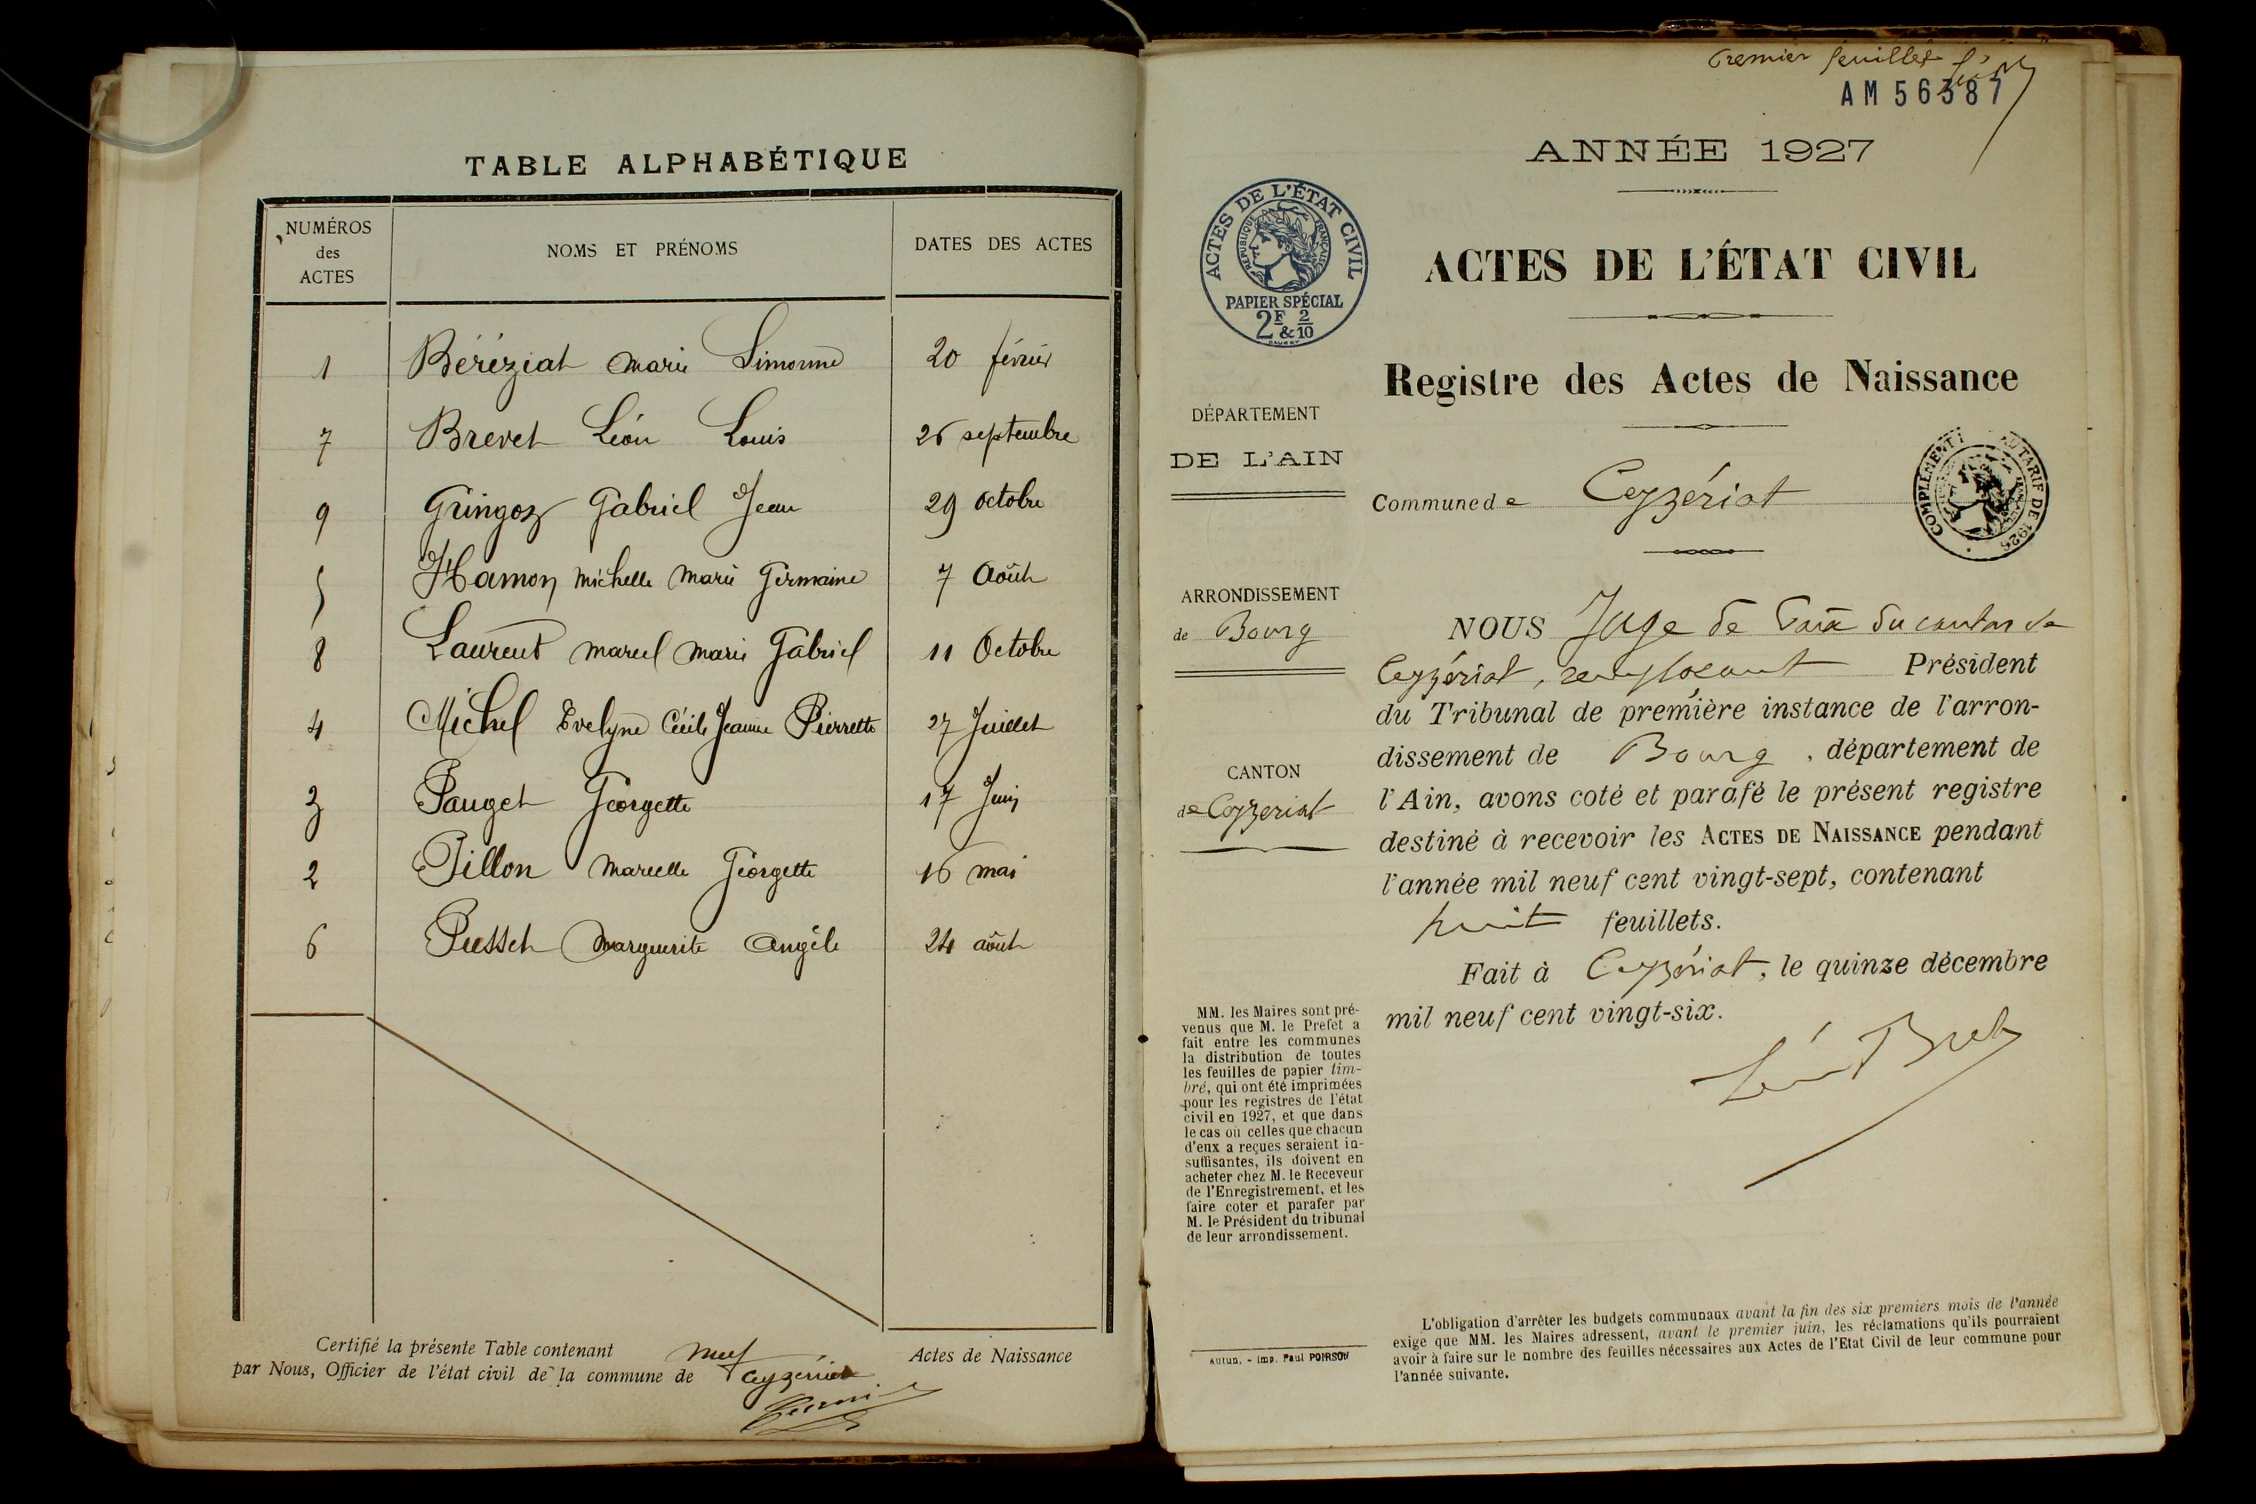 TABLE ALPHABÉTIQUE
NUMÉROS des ACTES
NOMS ET PRÉNOMS
DATES DES ACTES
1 Béréziat Marie Simonne 20 février
7 Brevet Léon Louis 26 septembre
9 Gringoz Gabriel Jean 29 octobre
5 Hamon Michelle Marie Germaine 7 Août
8 Laurent Marcel Marie Gabriel 11 Octobre
4 Michel Evelyne Cécile Jeanne Pierrette 27 Juillet
3 Pauget Georgette 17 Juin
2 Pillon Marcelle Georgette 16 mai
6 Pusset Marguerite Angèle 24 août
Certifié la présente Table contenant neuf Actes de Naissance
par Nous, Officier de l'état civil de la commune de Ceyzériat
Premier feuillet
AM 56387
ANNÉE 1927
ACTES DE L'ÉTAT CIVIL
RÉPUBLIQUE FRANÇAISE
PAPIER SPÉCIAL
2F & 2/10
ACTES DE L'ÉTAT CIVIL
Registre des Actes de Naissance
DÉPARTEMENT
DE L'AIN
Commune de Ceyzériat
COMPLÉMENT TARIF DE 1926
ARRONDISSEMENT
de Bourg
CANTON
de Ceyzeriat
NOUS Juge de Paix du canton de
Ceyzériat, remplaçant Président
du Tribunal de première instance de l'arron-
dissement de Bourg, département de
l'Ain, avons coté et parafé le présent registre
destiné à recevoir les ACTES DE NAISSANCE pendant
l'année mil neuf cent vingt-sept, contenant
huit feuillets.
Fait à Ceyzériat, le quinze décembre
mil neuf cent vingt-six.
MM. les Maires sont pré-
venus que M. le Prefet a
fait entre les communes
la distribution de toutes
les feuilles de papier tim-
bré, qui ont été imprimées
pour les registres de l'état
civil en 1927, et que dans
le cas où celles que chacun
d'eux a reçues seraient in-
suffisantes, ils doivent en
acheter chez M. le Receveur
de l'Enregistrement, et les
faire coter et parafer par
M. le Président du tribunal
de leur arrondissement.
Autun. - Imp. Paul POIRSON
L'obligation d'arrêter les budgets communaux avant la fin des six premiers mois de l'année
exige que MM. les Maires adressent, avant le premier juin, les réclamations qu'ils pourraient
avoir à faire sur le nombre des feuilles nécessaires aux Actes de l'Etat Civil de leur commune pour
l'année suivante.